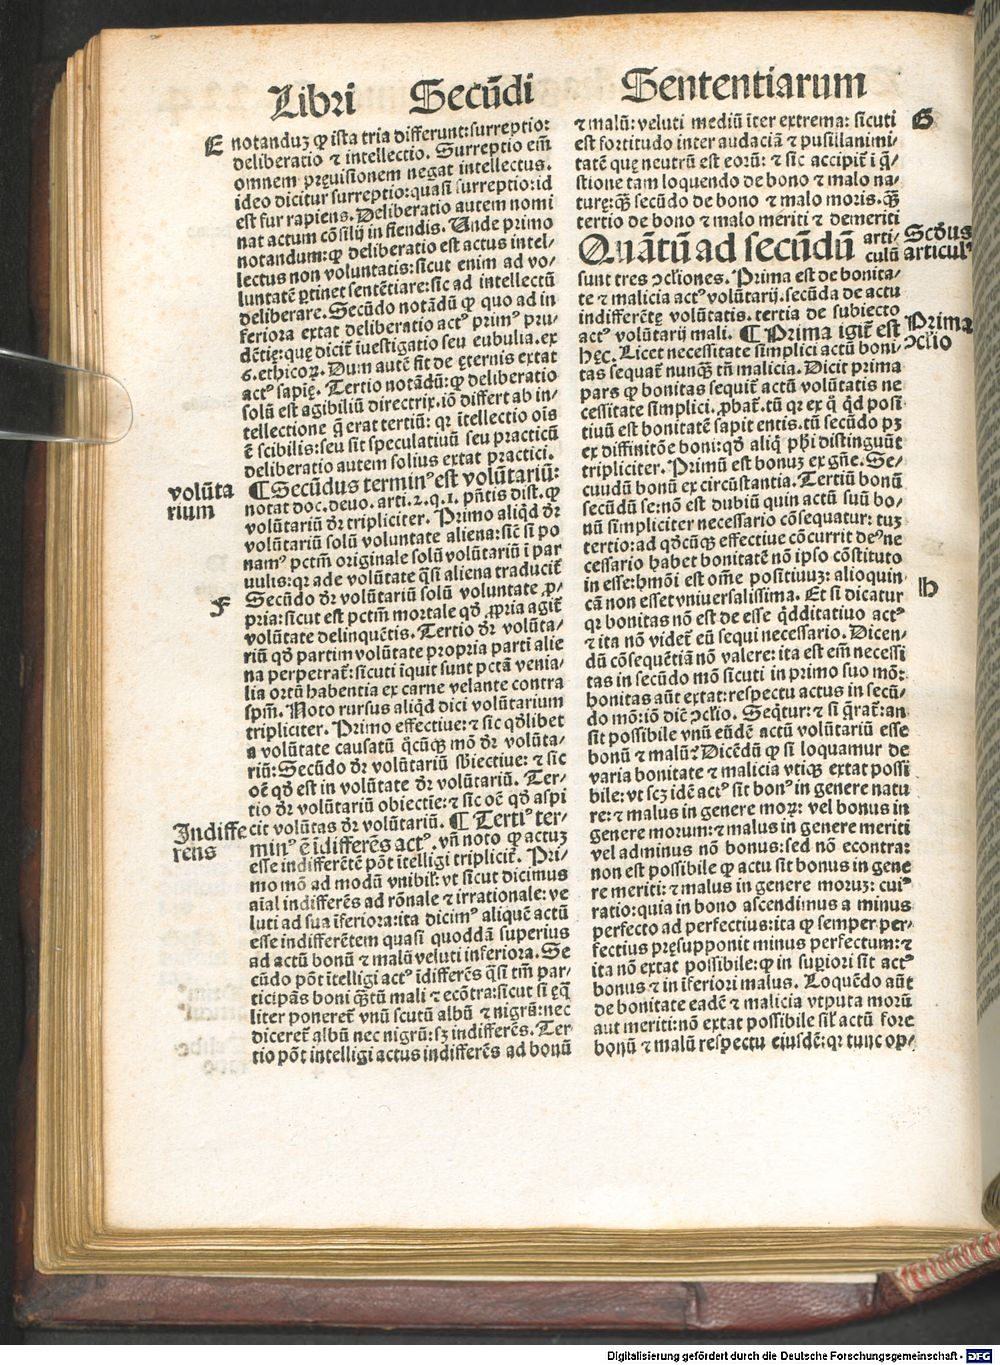 Libri Secūdi Sententiarum
E
notanduꝫ ꝙ ista tria differunt:surreptio:
deliberatio ⁊ intellectio. Surreptio em̄
omnem pręvisionem negat intellectus.
ideo dicitur surreptio:quasi surreptio:id
est fur rapiens. Deliberatio autem nomi
nat actum cōsilij in fiendis. Unde primo
notandum:ꝙ deliberatio est actus intel⸗
lectus non voluntatis:sicut enim ad vo⸗
luntatē ꝑtinet sentētiare:sic ad intellectū
deliberare. Secūdo notādū ꝙ quo ad in
feriora extat deliberatio actꝰ primꝰ pru⸗
dētię:quę dicit̄ īuestigatio seu eubulia.ex
6.ethicoꝝ. Dum autē fit de ęternis extat
actꝰ sapię. Tertio notādū:ꝙ deliberatio
solū est agibiliū directrix.iō differt ab in⸗
tellectione q̄ erat tertiū: qꝛ ītellectio oīs
ē scibilis:seu sit speculatiuū seu practicū
deliberatio autem solius extat practici.
volūta
rium
¶ Secūdus terminꝰ est volūtariū:
notat doc.deuo. arti.2.q.1. pn̄tis dist. ꝙ
volūtariū dr̄ tripliciter. Primo aliqd̄ dr̄
voluntariū solū voluntate aliena:sic̄ si po
namꝰ pctm̄ originale solū volūtariū ī par
uulis:qꝛ ade volūtate q̄si aliena traducit̄
F
Secūdo dr̄ volūtariū solū voluntate ꝓ⸗
pria:sicut est pctm̄ mortale qd̄ ꝓpria agit̄
volūtate delinquētis. Tertio dr̄ volūta⸗
riū qd̄ partim volūtate propria parti alie
na perpetrat̄:sicuti īquit sunt pctā venia⸗
lia ortū habentia ex carne velante contra
spm̄. Noto rursus aliqd̄ dici volūtarium
tripliciter. Primo effectiue:⁊ sic qd̄libet
a volūtate causatū q̄cūqꝫ mō dr̄ volūta⸗
riū:Secūdo dr̄ volūtariū sbiectiue: ⁊ sic
oē qd̄ est in volūtate dr̄ volūtariū. Ter⸗
tio dr̄ volūtariū obiectie:⁊ sic oē qd̄ aspi
Indiffe
rens
cit volūtas dr̄ volūtariū. ¶ Tertiꝰ ter⸗
minꝰ ē īdifferēs actꝰ. vn̄ noto ꝙ actuꝫ
esse indifferētē pōt ītelligi triplicit̄. Pri⸗
mo mō ad modū vnibil:vt sicut dicimus
aial indifferēs ad rōnale ⁊ irrationale: ve
luti ad sua īferiora:ita dicimꝰ aliquē actū
esse indifferētem quasi quoddā superius
ad actū bonū ⁊ malū veluti inferiora. Se
cūdo pōt ītelligi actꝰ īdifferēs q̄si tm̄ par⸗
ticipās boni q̄tū mali ⁊ ecōtra:sicut si ęq̄
liter poneret̄ vnū scutū albū ⁊ nigrū:nec
diceret̄ albū nec nigrū:sꝫ indifferēs. Ter
tio pōt intelligi actus indifferēs ad bonū
⁊ malū:veluti mediū īter extrema: sicuti
G
est fortitudo inter audaciā ⁊ pusillanimi⸗
tatē quę neutrū est eorū: ⁊ sic accipit̄ ī q̄⸗
stione tam loquendo de bono ⁊ malo na⸗
turę:q̄ꝫ secūdo de bono ⁊ malo moris.q̄ꝫ
tertio de bono ⁊ malo meriti ⁊ demeriti
Quātū ad secūdū arti⸗
culū
Scd̄us
articulꝰ
sunt tres ↄcl̄iones. Prima est de bonita⸗
te ⁊ malicia actꝰ volūtarij.secūda de actu
indifferētę volūtatis. tertia de subiecto
actꝰ volūtarij mali. ¶ Prima igit̄ est
Prima
ↄcl̄io
hęc. Licet necessitate simplici actū boni⸗
tas sequat̄ nunq̄ꝫ tn̄ malicia. Dicit prima
pars ꝙ bonitas sequit̄ actū volūtatis ne
cessitate simplici. ꝓbat̄.tū qꝛ ex q̄ qd̄ posi
tiuū est bonitatē sapit entis.tū secūdo pꝫ
ex diffinitōe boni:qd̄ aliq̄ phī distinguūt
tripliciter. Primū est bonuꝫ ex gn̄e. Se⸗
cuudū bonū ex circūstantia. Tertiū bonū
secūdū se:nō est dubiū quin actū suū bo⸗
nū simpliciter necessario cōsequatur: tuꝫ
tertio:ad qd̄cūqꝫ effectiue cōcurrit deꝰ ne
cessario habet bonitatē nō ipso cōstituto
h
in esse:hmōi est om̄e positiuuꝫ: alioquin
cā non esset vniuersalissima. Et si dicatur
qꝛ bonitas nō est de esse q̄dditatiuo actꝰ
⁊ ita nō videt̄ eū sequi necessario. Dicen⸗
dū cōsequētiā nō valere: ita est em̄ necessi
tas in secūdo mō sicuti in primo suo mō:
bonitas aūt extat:respectu actus in secū⸗
do mō:iō diēc ↄcl̄io. Seqt̄ur:⁊ si q̄rat̄:an
sit possibile vnū eūdē actū volūtariū esse
bonū ⁊ malū? Dicēdū ꝙ si loquamur de
varia bonitate ⁊ malicia vtiqꝫ extat possi
bile:vt scꝫ idē actꝰ sit bonꝰ in genere natu
rę:⁊ malus in genere moꝝ: vel bonus in
genere morum:⁊ malus in genere meriti
vel adminus nō bonus:sed nō econtra:
non est possibile ꝙ actu sit bonus in gene
re meriti: ⁊ malus in genere moruꝫ: cuiꝰ
ratio:quia in bono ascendimus a minus
perfecto ad perfectius:ita ꝙ semper per⸗
fectius pręsupponit minus perfectum:⁊
ita nō extat possibile:ꝙ in suꝑiori sit actꝰ
bonus ⁊ in īferiori malus. Loquēdo aūt
de bonitate eadē ⁊ malicia vtputa morū
aut meriti:nō extat possibile sil̄ actū fore
bonū ⁊ malū respectu eiusdē:qꝛ tunc op⸗
Digitalisierung gefördert durch die Deutsche Forschungsgemeinschaft - DFG